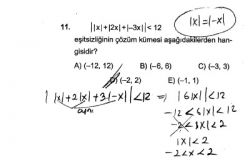 11. ||x|+|2x|+|-3x|| < 12
|x|=|-x|
eşitsizliğinin çözüm kümesi aşağıdakilerden han-
gisidir?
A) (-12, 12) B) (-6, 6) C) (-3, 3)
D) (-2, 2) E) (-1, 1)
| |x|+2|x|+3|-x| | <12 = |6|x||<12
aynı
-12<6|x|<12
-2<|x|<2
|x|<2
-2<x<2